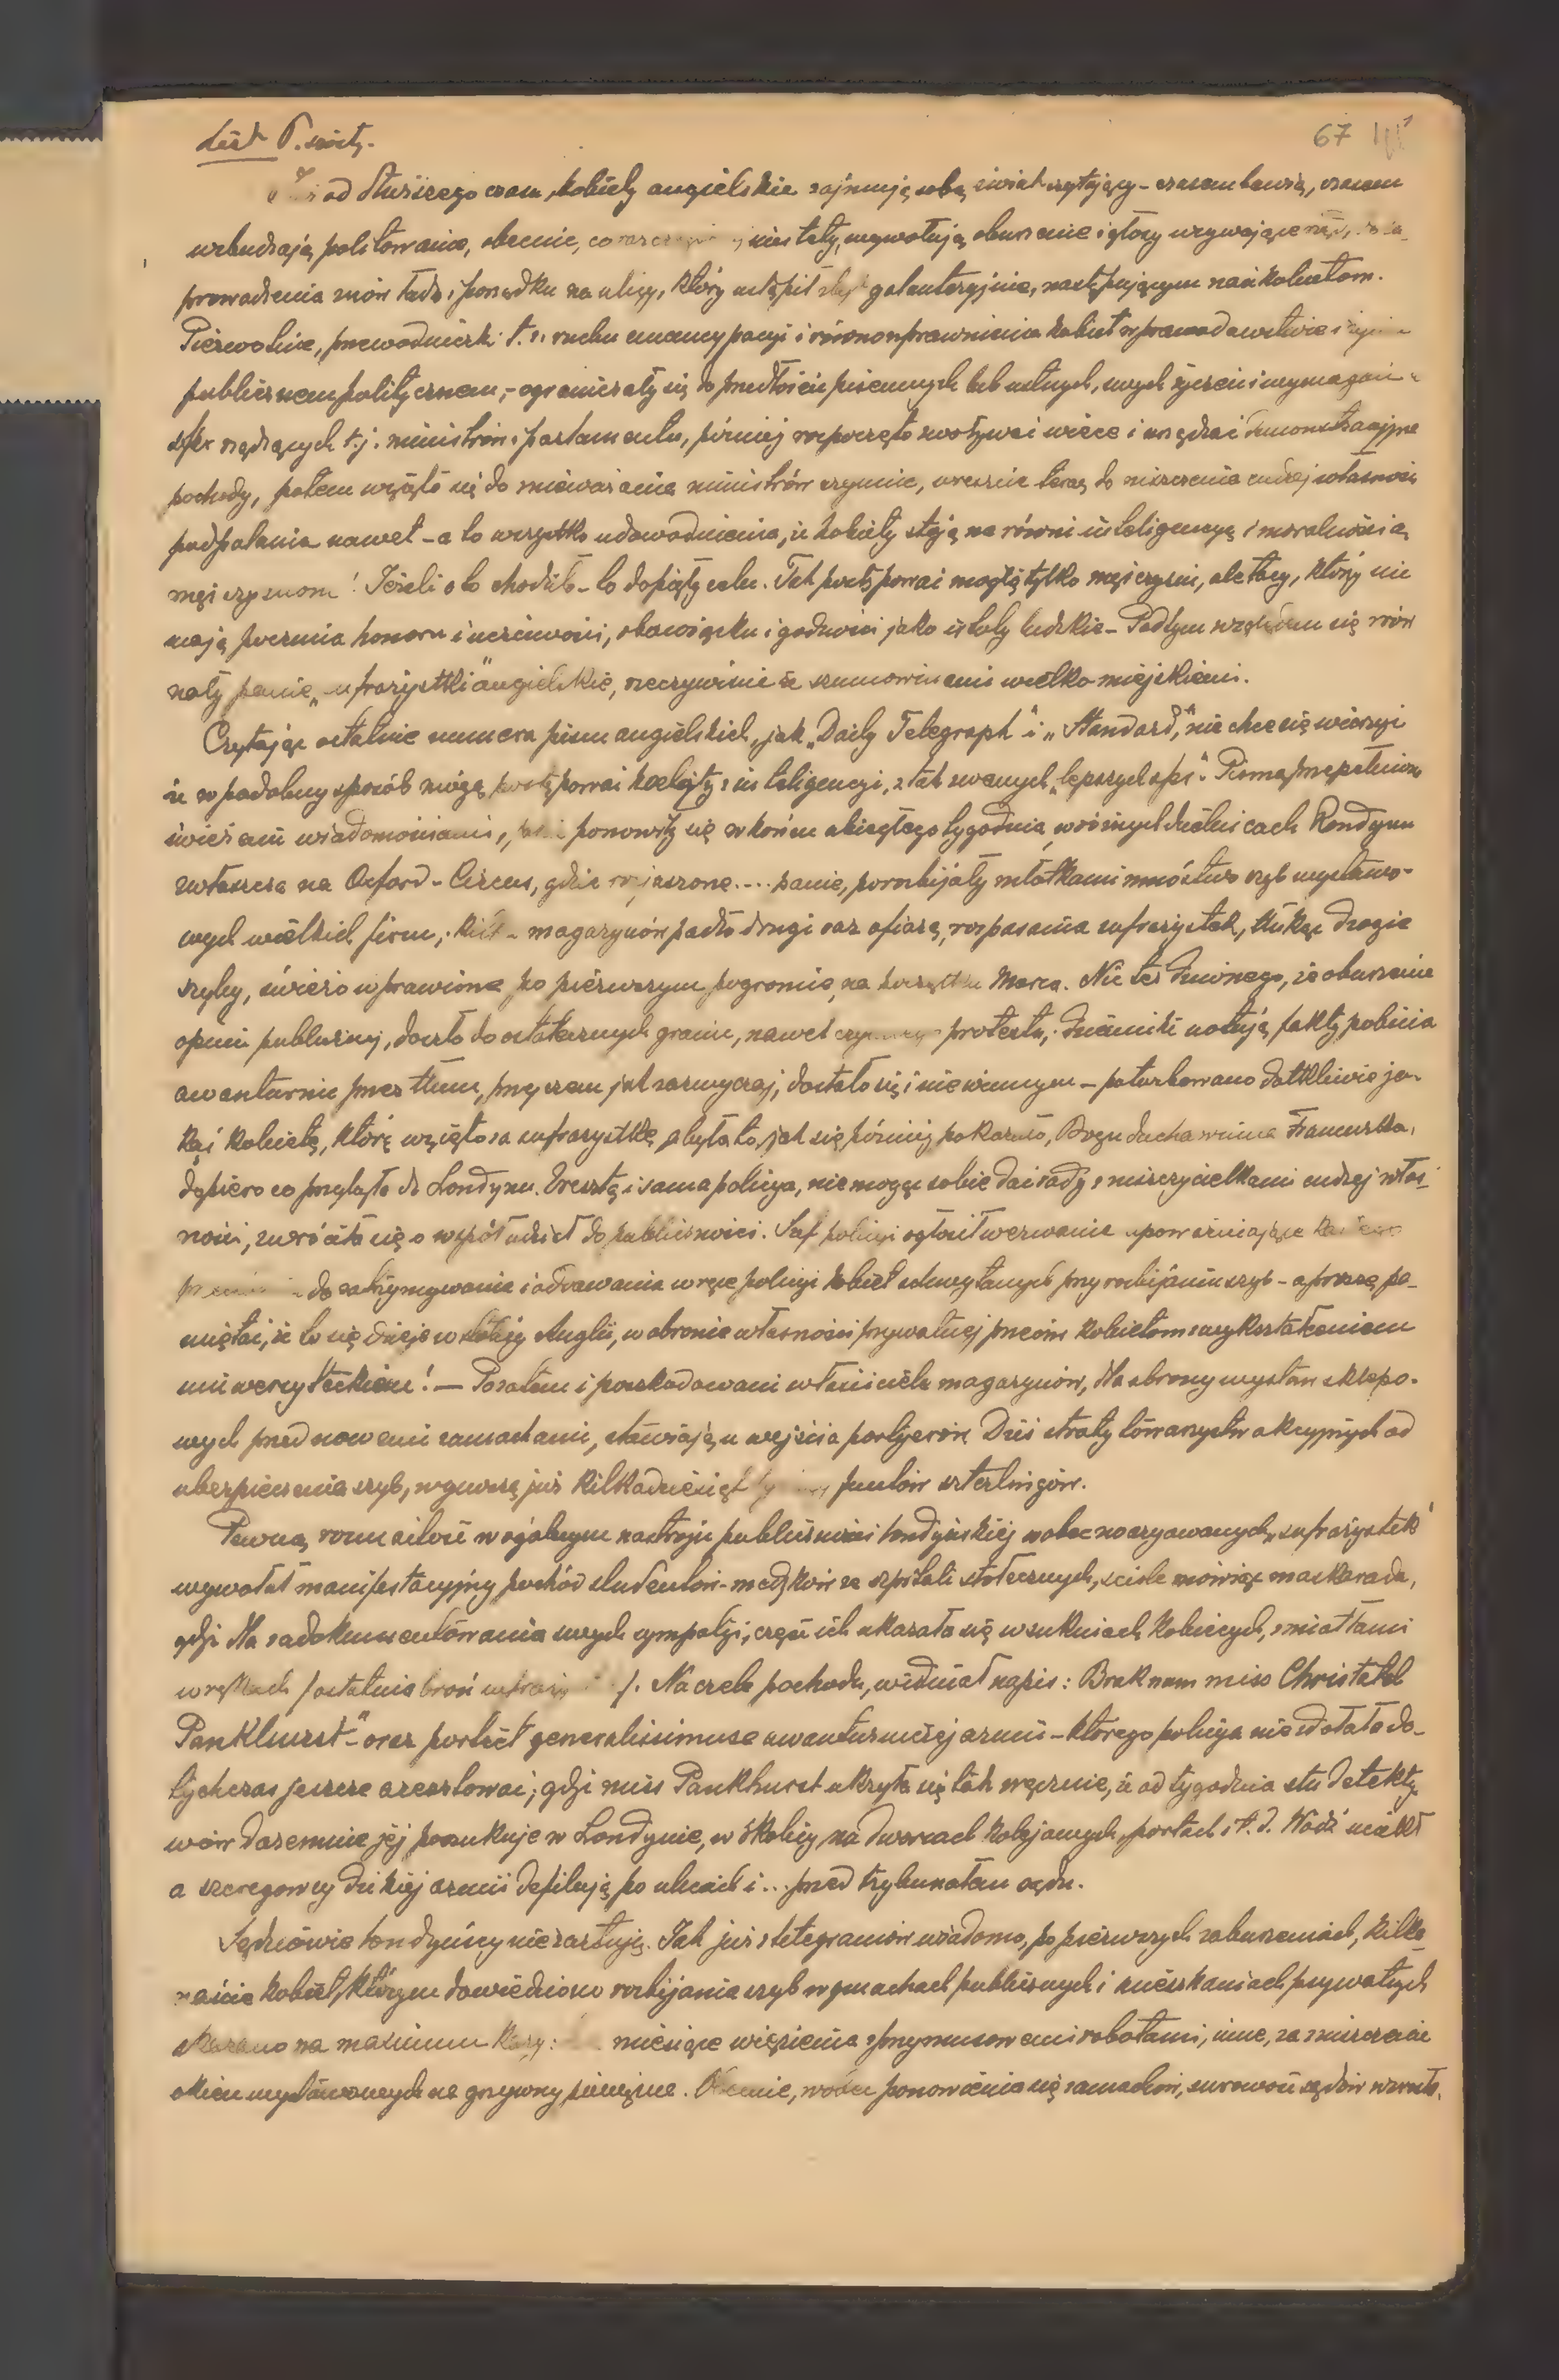 List 6. szósty.
67
od dłuższego czasu, kobiety angielskie zajmują sobą świat czytający - czasem bawią, czasem
wzbudzają politowanie, obecnie, niestety, wywołują oburzenie i głosy wzywające
prowadzenia znów ładu i porządku na ulicy, który ustąpił galanteryjnie, nastającym nań kobietom.
Pierwotnie, przewodniczki t. z. ruchu emancypacyi i równouprawnienia kobiet w prawodawstwie i
publicznem politycznem, - ograniczały się do przedłożeń pisemnych lub ustnych, swych życzeń i wymagań
sfer rządzących t.j. ministrów i parlamentu, później rozpoczęto zwoływać wiece i urządzać demonstracyjne
pochody, potem wzięto się do znieważania ministrów czynnie, wreszcie teraz do niszczenia cudzej własności
podpalania nawet - a to wszystko udowodnienia, iż kobiety stoją na równi inteligencyą i moralnością
mężczyznom! Jeżeli o to chodziło - to dopięły celu. Tak postępować mogą tylko mężczyźni, ale tacy, którzy nie
mają poczucia honoru i uczciwości, obowiązku i godności jako istoty ludzkie - Pod tym względem się zrów
nały panie „sufrażystki" angielskie, rzeczywiście ze szumowinami wielkomiejskiemi.
Czytając ostatnie numera pism angielskich, jak „Daily Telegraph" i „Standard," nie chce się wierzyć
iż w podobny sposób mogą postępować kobiety z inteligencyi, z tak zwanych „lepszych sfer". Pisma przepełnione
świeżemi wiadomościami, ponowiły się w końcu ubiegłego tygodnia, w różnych dzielnicach Londynu
zwłaszcza na Oxford-Circus, gdzie rozjuszone.... panie, porozbijały młotkami mnóstwo szyb wystawo-
wych wielkich firm; magazynów padło drugi raz ofiarą, rozpasania sufrażystek, tłukąc drogie
szyby, świeżo wprawione po pierwszym pogromie, na początku Marca. Nic też dziwnego, że oburzenie
opinii publicznej, doszło do ostatecznych granic, nawet protestu; dzienniki notują fakty pobicia
awanturnic przez tłum, przyczem jak zazwyczaj, dostało się i niewinnym - poturbowano dotkliwie ja-
kąś kobietę, którą wzięto za sufrażystkę, a była to, jak się później pokazało, Bogu ducha winna Francuzka,
dopiero co przybyła do Londynu. Zresztą i sama policya, nie mogąc sobie dać rady z niszczycielkami cudzej włas-
ności, zwróciła się o współudział do publiczności. Szef policyi ogłosił wezwanie upoważniające
do zatrzymywania i oddawania w ręce policyi kobiet schwytanych przy rozbijaniu szyb - a proszę pa-
miętać, że to się dzieje w Anglii, w obronie własności prywatnej przeciw kobietom z wykształceniem
uniwersyteckiem! — Pozatem i poszkodowani właściciele magazynów, dla obrony wystaw sklepo-
wych przed nowemi zamachami, stawiają u wejścia portyerów. Dziś straty towarzystw akcyjnych od
ubezpieczenia szyb, wynoszą już kilkadziesiąt funtów szterlingów.
Pewną rozmaitość w ogólnym nastroju publiczności londyńskiej wobec „sufrażystek"
wywołał manifestacyjny pochód studentów-medyków ze szpitali stołecznych, ściśle mówiąc maskarada,
gdyż dla zadokumentowania swych sympatyj, część ich ukazała się w sukniach kobiecych, z miotłami
w rękach /ostatnia broń /. Na czele pochodu, widniał napis: Brak nam miss Christabel
Pankhurst-" oraz portret generalissimusa awanturniczej armii - którego policya nie zdołała do-
tychczas jeszcze aresztować; gdyż miss Pankhurst ukryła się tak zręcznie, iż od tygodnia stu detekty-
wów daremnie jej poszukuje w Londynie, w okolicy, na dworcach kolejowych, portach i t. d. Wódz uciekł
a szeregowcy dzikiej armii defilują po ulicach i... przed trybunałem sądu.
Sędziowie londyńscy nie żartują. Jak już z telegramów wiadomo, po pierwszych zaburzeniach, kilka-
naście kobiet, którym dowiedziono rozbijania szyb w gmachach publicznych i mieszkaniach prywatnych
skazano na maximum kary: miesiące więzienia z przymusowemi robotami, inne, za zniszczenie
okien wystawowych na grzywny pieniężne. Obecnie, wobec ponowienia się zamachów, surowość sędziów wzrosła.